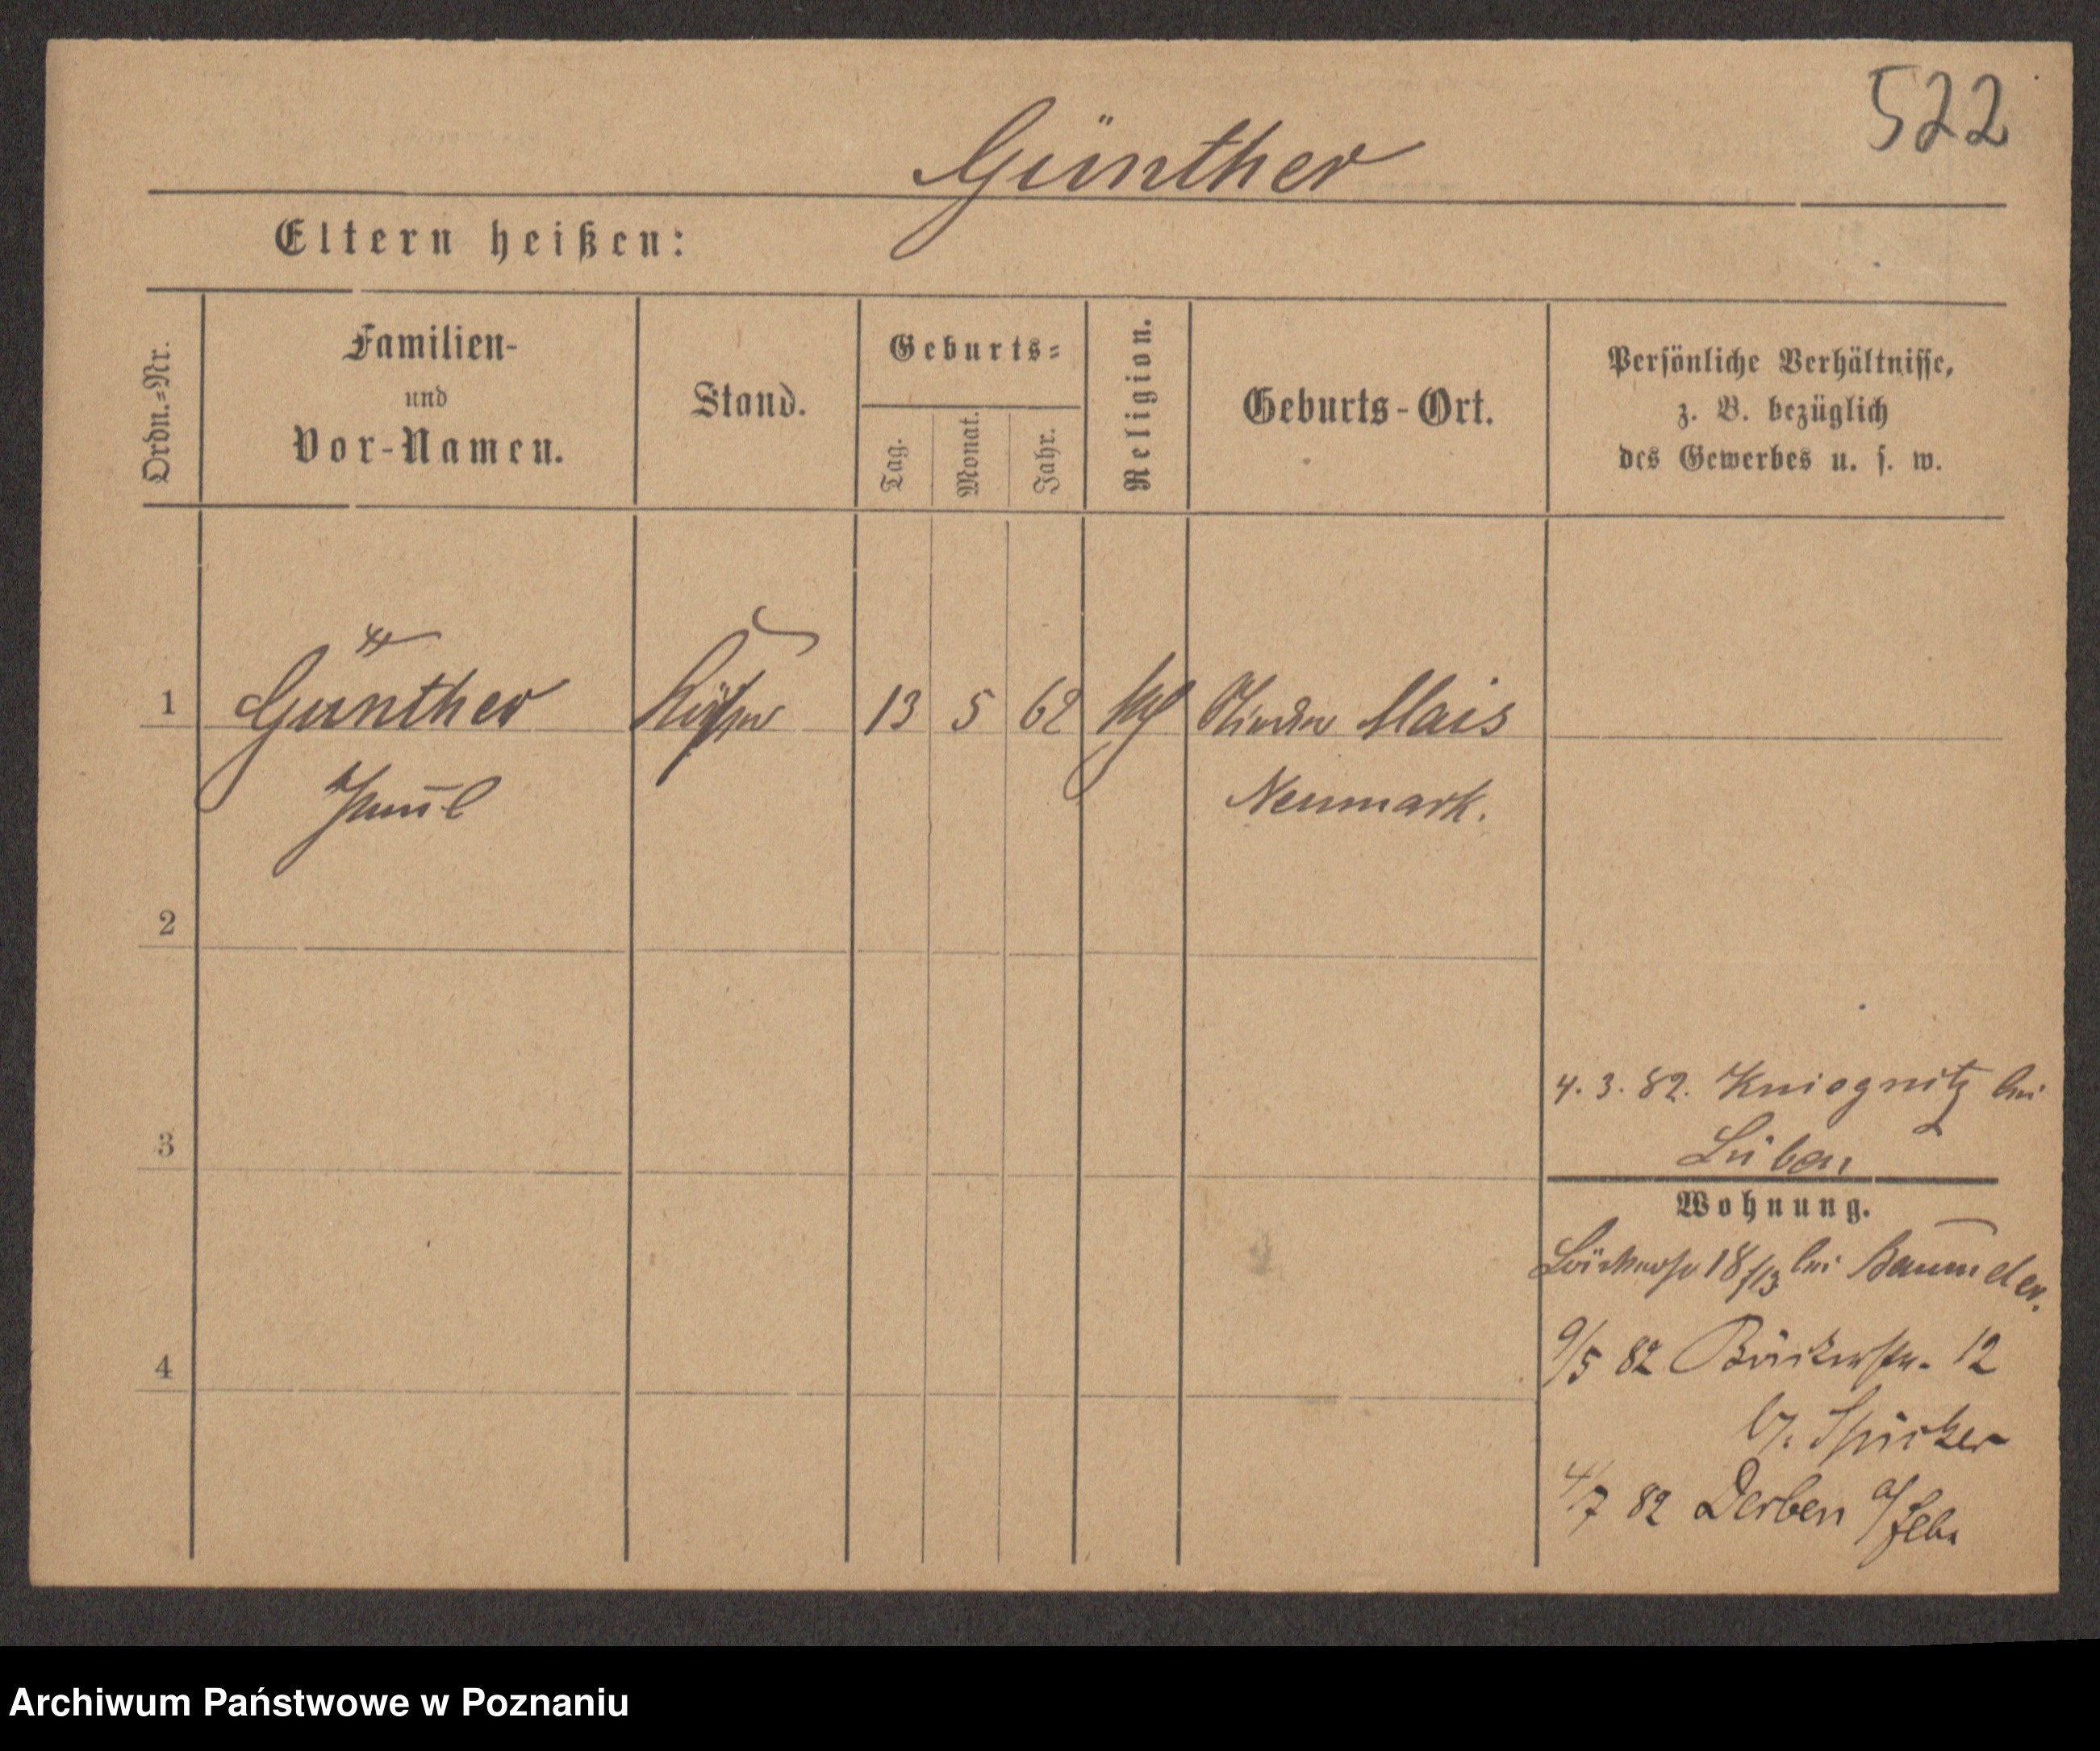 522
Günther
Eltern heißen:
Ordn.=Nr.
Familien-
und
Vor-Namen.
Stand.
Geburts=
Tag.
Monat.
Jahr.
Religion.
Geburts-Ort.
Persönliche Verhältnisse,
z. B. bezüglich
des Gewerbes u. s. w.
1 Günther 13 5 62 Mais
Paul Neumark.
2
3
4
4. 3. 82. Kniegnitz bei
Lüben
Wohnung.
18/13 bei
9/5 82 12
4/7 82 Derben a/Elbe
Archiwum Państwowe w Poznaniu